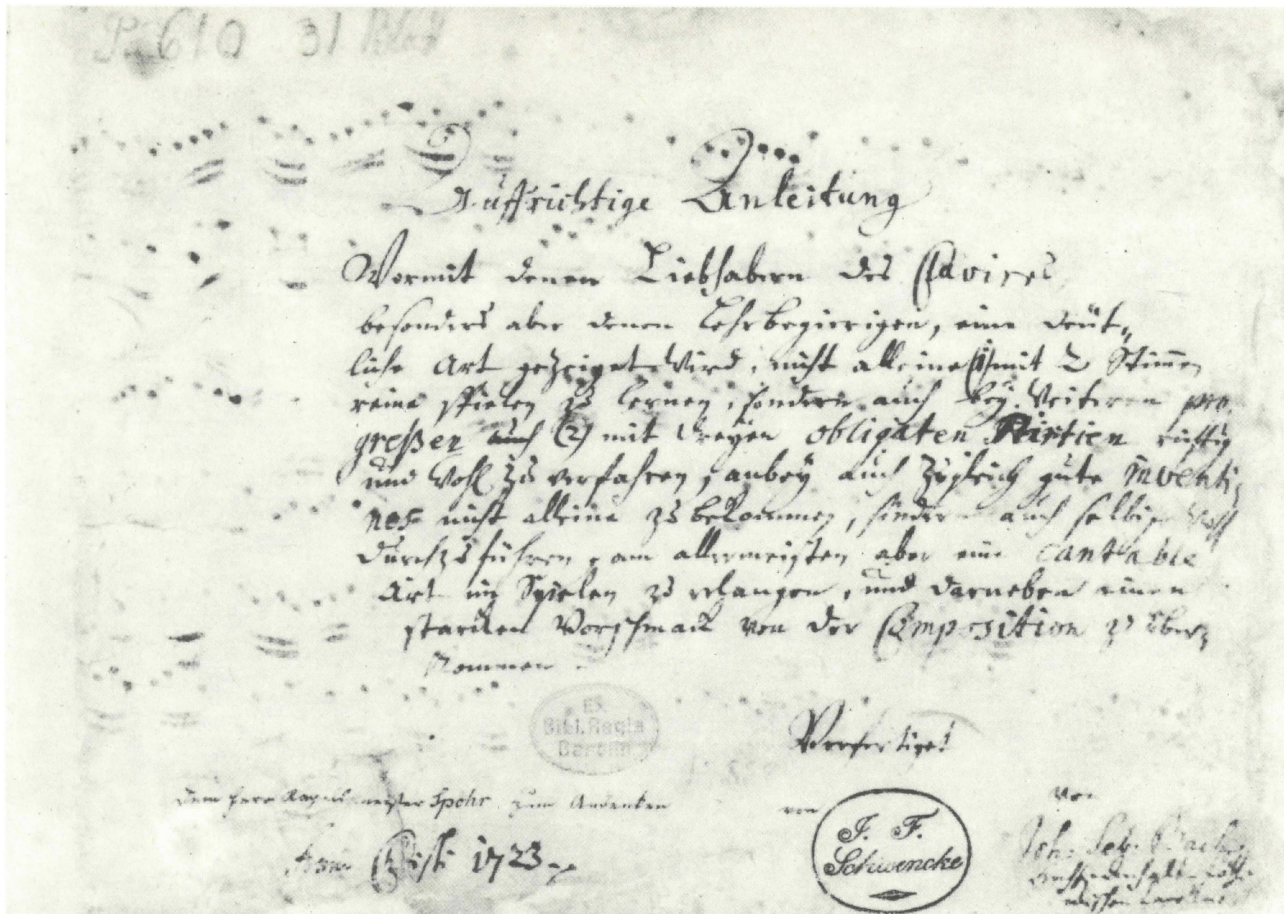 P. 610 31 Blatt
Auffrichtige Anleitung
Wormit denen Liebhabern des Clavires,
besonders aber denen Lehrbegierigen, eine deüt-
liche Art gezeiget wird, nicht alleine (1) mit 2 Stimen
reine spielen zu lernen, sondern auch bey weiteren pro-
greßen auch (2) mit dreyen obligaten Partien richtig
und wohl zu verfahren, anbey auch zugleich gute inventi-
ones nicht alleine zu bekommen, sondern auch selbige wohl
durchzuführen, am allermeisten aber eine cantable
Art im Spielen zu erlangen, und darneben einen
starcken Vorschmack von der Composition zu über-
kommen.
Ex
Bibl. Regia
Berolin
Verfertiget
dem Herr Kapellmeister Spohr, zum Andenken
von
J. F.
Schwencke
von
Anno Christi 1723.
Joh. Seb. Bach